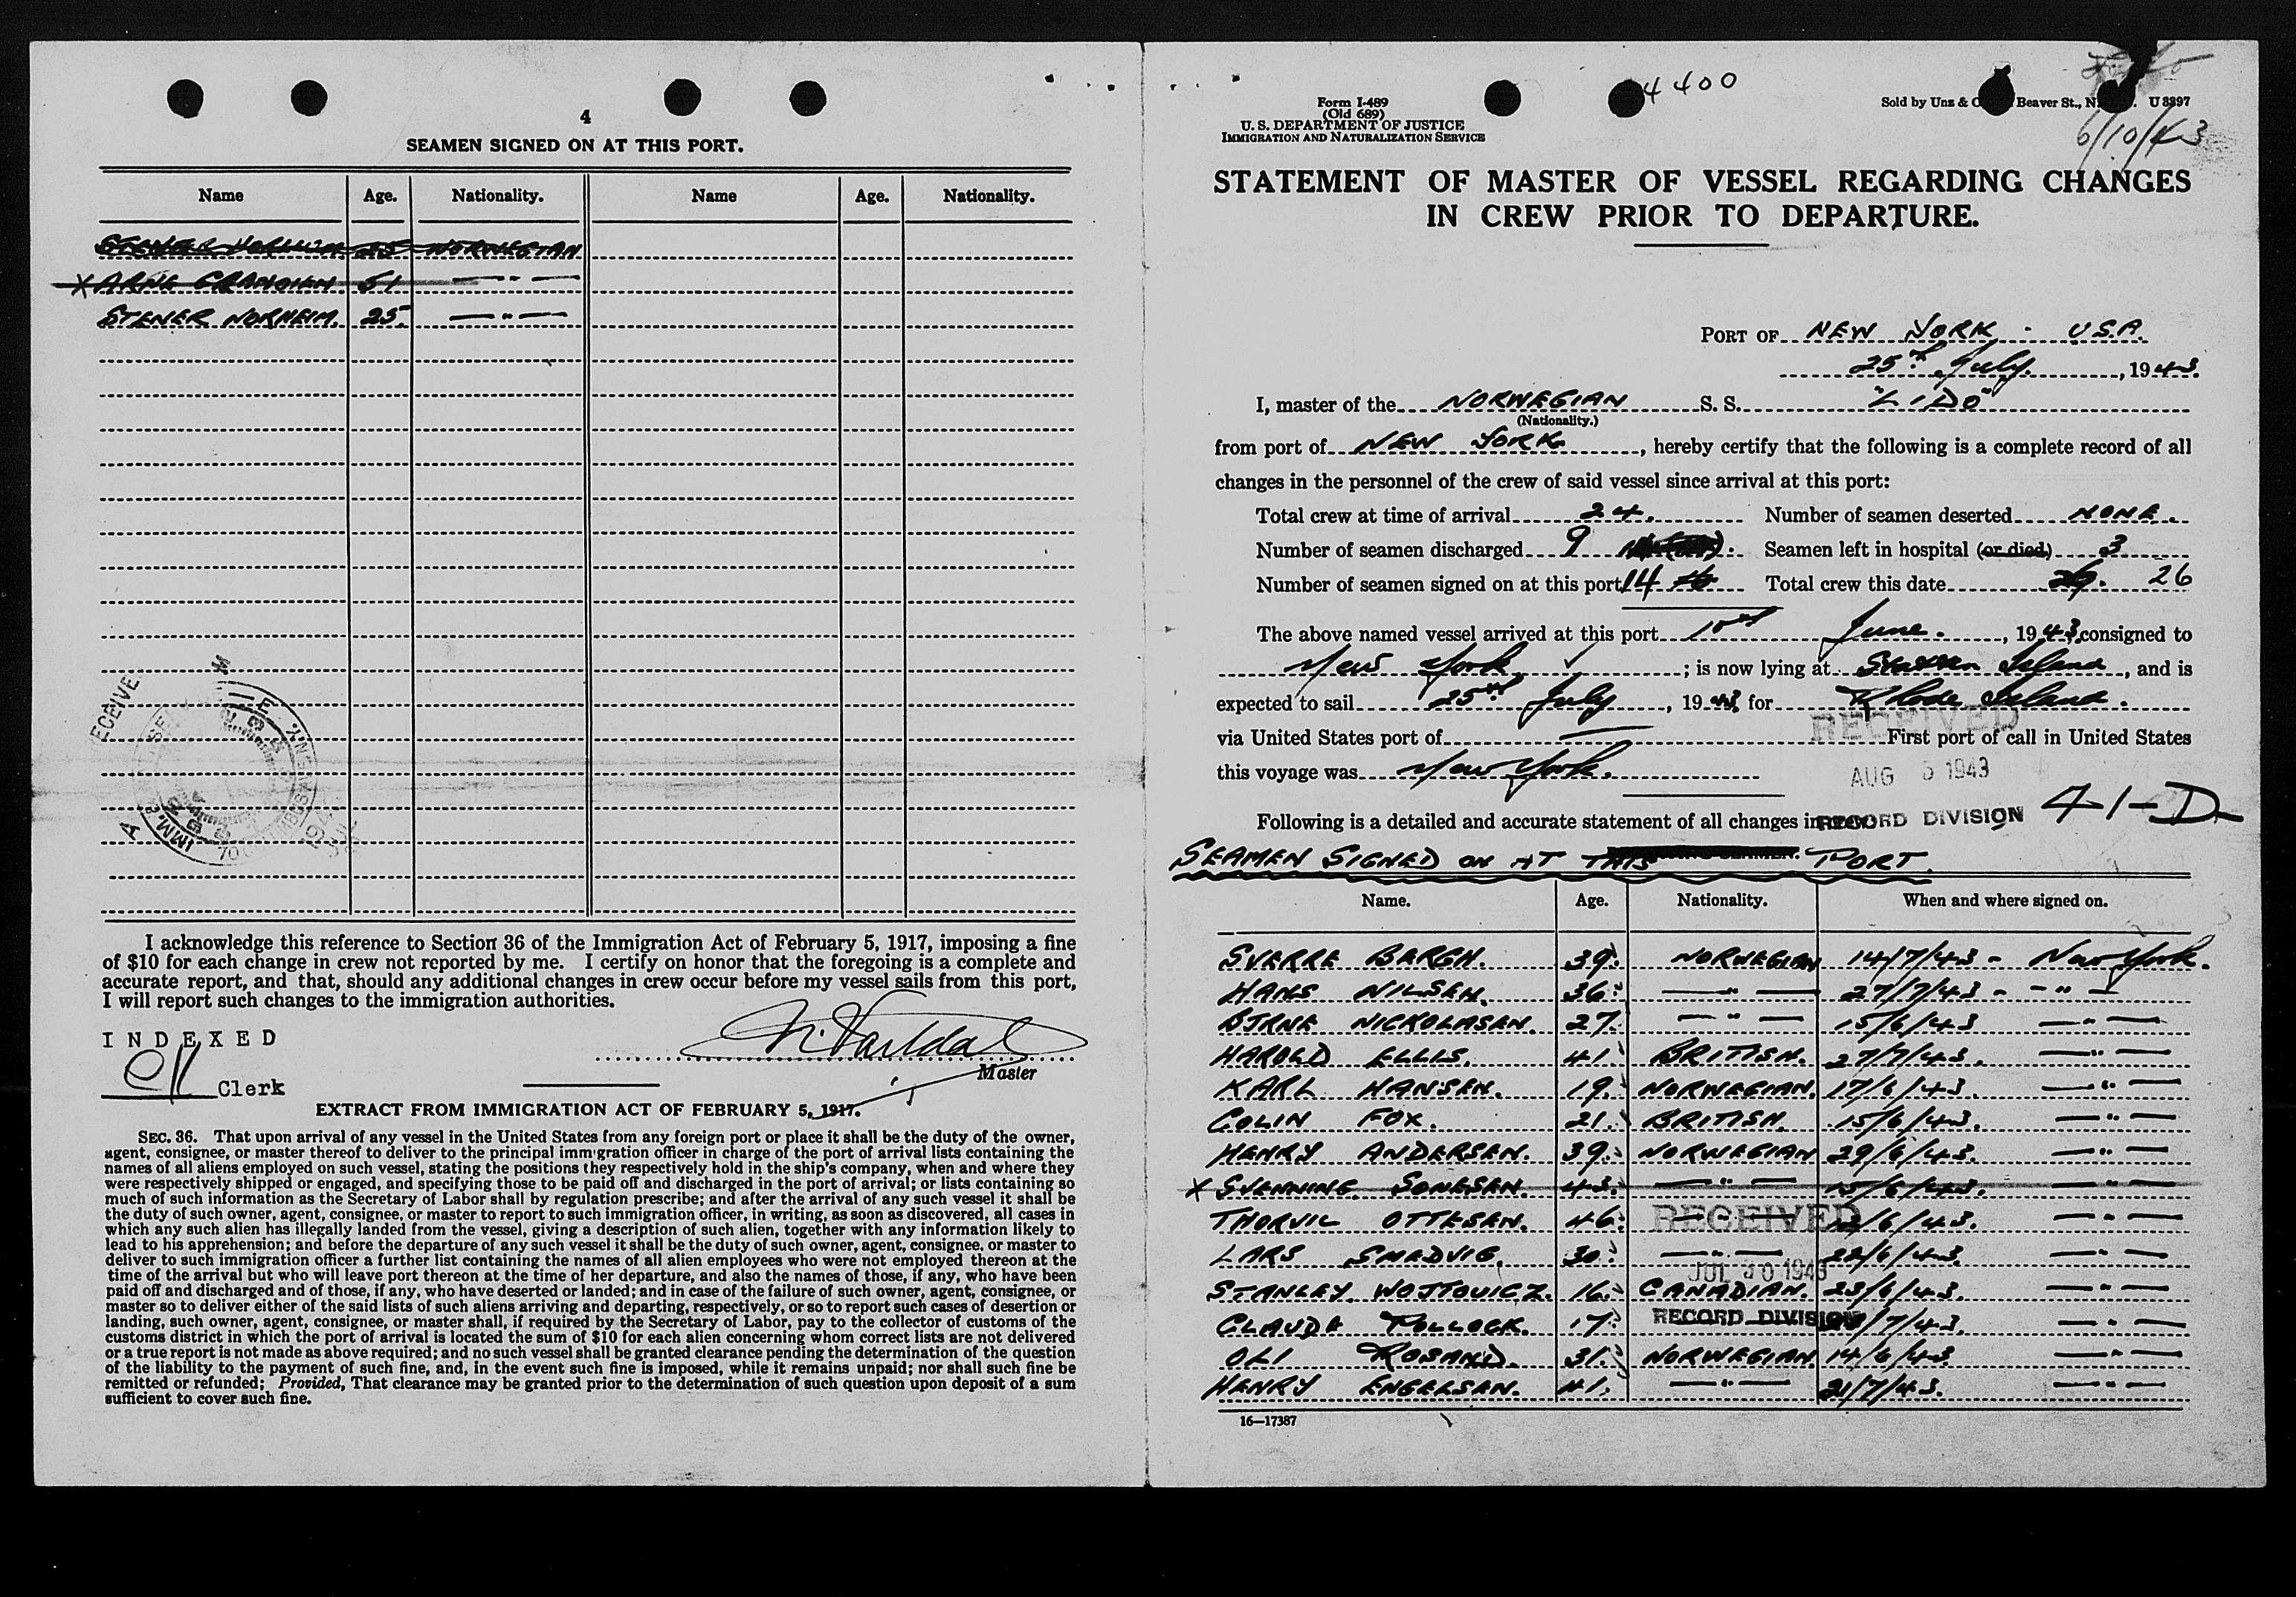 4
SEAMEN SIGNED ON AT THIS PORT.
Name Age. Nationality. Name Age. Nationality.
25 NORWEGIAN
X ARNE 51 —"—
STENER NORHEIM. 25. —"—
I acknowledge this reference to Section 36 of the Immigration Act of February 5, 1917, imposing a fine
of $10 for each change in crew not reported by me. I certify on honor that the foregoing is a complete and
accurate report, and that, should any additional changes in crew occur before my vessel sails from this port,
I will report such changes to the immigration authorities.
INDEXED
Master
Clerk
EXTRACT FROM IMMIGRATION ACT OF FEBRUARY 5, 1917.
SEC. 36. That upon arrival of any vessel in the United States from any foreign port or place it shall be the duty of the owner,
agent, consignee, or master thereof to deliver to the principal immigration officer in charge of the port of arrival lists containing the
names of all aliens employed on such vessel, stating the positions they respectively hold in the ship's company, when and where they
were respectively shipped or engaged, and specifying those to be paid off and discharged in the port of arrival; or lists containing so
much of such information as the Secretary of Labor shall by regulation prescribe; and after the arrival of any such vessel it shall be
the duty of such owner, agent, consignee, or master to report to such immigration officer, in writing, as soon as discovered, all cases in
which any such alien has illegally landed from the vessel, giving a description of such alien, together with any information likely to
lead to his apprehension; and before the departure of any such vessel it shall be the duty of such owner, agent, consignee, or master to
deliver to such immigration officer a further list containing the names of all alien employees who were not employed thereon at the
time of the arrival but who will leave port thereon at the time of her departure, and also the names of those, if any, who have been
paid off and discharged and of those, if any, who have deserted or landed; and in case of the failure of such owner, agent, consignee, or
master so to deliver either of the said lists of such aliens arriving and departing, respectively, or so to report such cases of desertion or
landing, such owner, agent, consignee, or master shall, if required by the Secretary of Labor, pay to the collector of customs of the
customs district in which the port of arrival is located the sum of $10 for each alien concerning whom correct lists are not delivered
or a true report is not made as above required; and no such vessel shall be granted clearance pending the determination of the question
of the liability to the payment of such fine, and, in the event such fine is imposed, while it remains unpaid; nor shall such fine be
remitted or refunded; Provided, That clearance may be granted prior to the determination of such question upon deposit of a sum
sufficient to cover such fine.
4400
Form I-489
(Old 689)
U. S. DEPARTMENT OF JUSTICE
IMMIGRATION AND NATURALIZATION SERVICE
Sold by Unz & Beaver St., U 8897
6/10/43
STATEMENT OF MASTER OF VESSEL REGARDING CHANGES
IN CREW PRIOR TO DEPARTURE.
PORT OF NEW YORK - U.S.A.
25th July, 1943.
I, master of the NORWEGIAN S. S. "LIDO"
(Nationality.)
from port of NEW YORK, hereby certify that the following is a complete record of all
changes in the personnel of the crew of said vessel since arrival at this port:
Total crew at time of arrival 24. Number of seamen deserted NONE.
Number of seamen discharged 9 Seamen left in hospital (or died) 3
Number of seamen signed on at this port 14 Total crew this date 26
The above named vessel arrived at this port 10th June., 1943, consigned to
New York; is now lying at Staten Island, and is
expected to sail 25th July, 1943, for Rhode Island.
RECEIVED
via United States port of — First port of call in United States
this voyage was New York.
AUG 5 1943
41-D
Following is a detailed and accurate statement of all changes in
RECORD DIVISION
SEAMEN SIGNED ON AT THIS PORT.
Name. Age. Nationality. When and where signed on.
SVERRE BERGH. 39. NORWEGIAN 14/7/43 - New York.
HANS NILSEN. 36. —"— 27/7/43 - -"-
BJRNE NICKOLASEN. 27. —"— 15/6/43 —"—
HAROLD ELLIS. 41. BRITISH. 27/7/43. —"—
KARL HANSEN. 19. NORWEGIAN. 17/6/43. —"—
COLIN FOX. 21. BRITISH. 15/6/43. —"—
HENRY ANDERSEN. 39. NORWEGIAN 29/6/43. —"—
X SVENNING SONESEN. 43. —"— 15/6/43. —"—
THORVIL OTTESEN. 46. —"— /6/43. —"—
RECEIVED
LARS SMEDVIG. 30. —"— 22/6/43. —"—
JUL 30 1943
STANLEY WOJTOVICZ. 16. CANADIAN. 23/6/43. —"—
CLAUDE POLLOCK. 17. /7/43. —"—
RECORD DIVISION
OLI ROSAND. 31. NORWEGIAN. 14/6/43. —"—
HENRY ENGELSEN. 41. —"— 21/7/43. —"—
16—17387